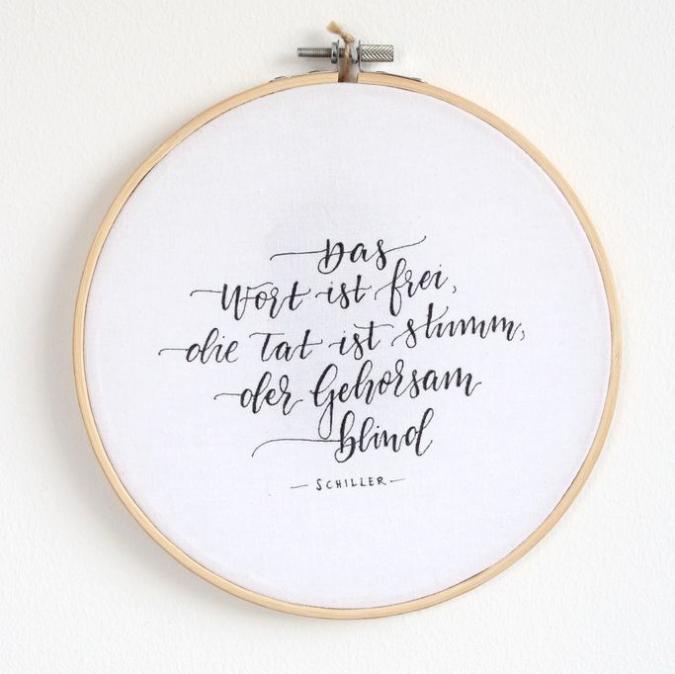 Das
Wort ist frei,
die Tat ist stumm,
der Gehorsam
blind
— SCHILLER —